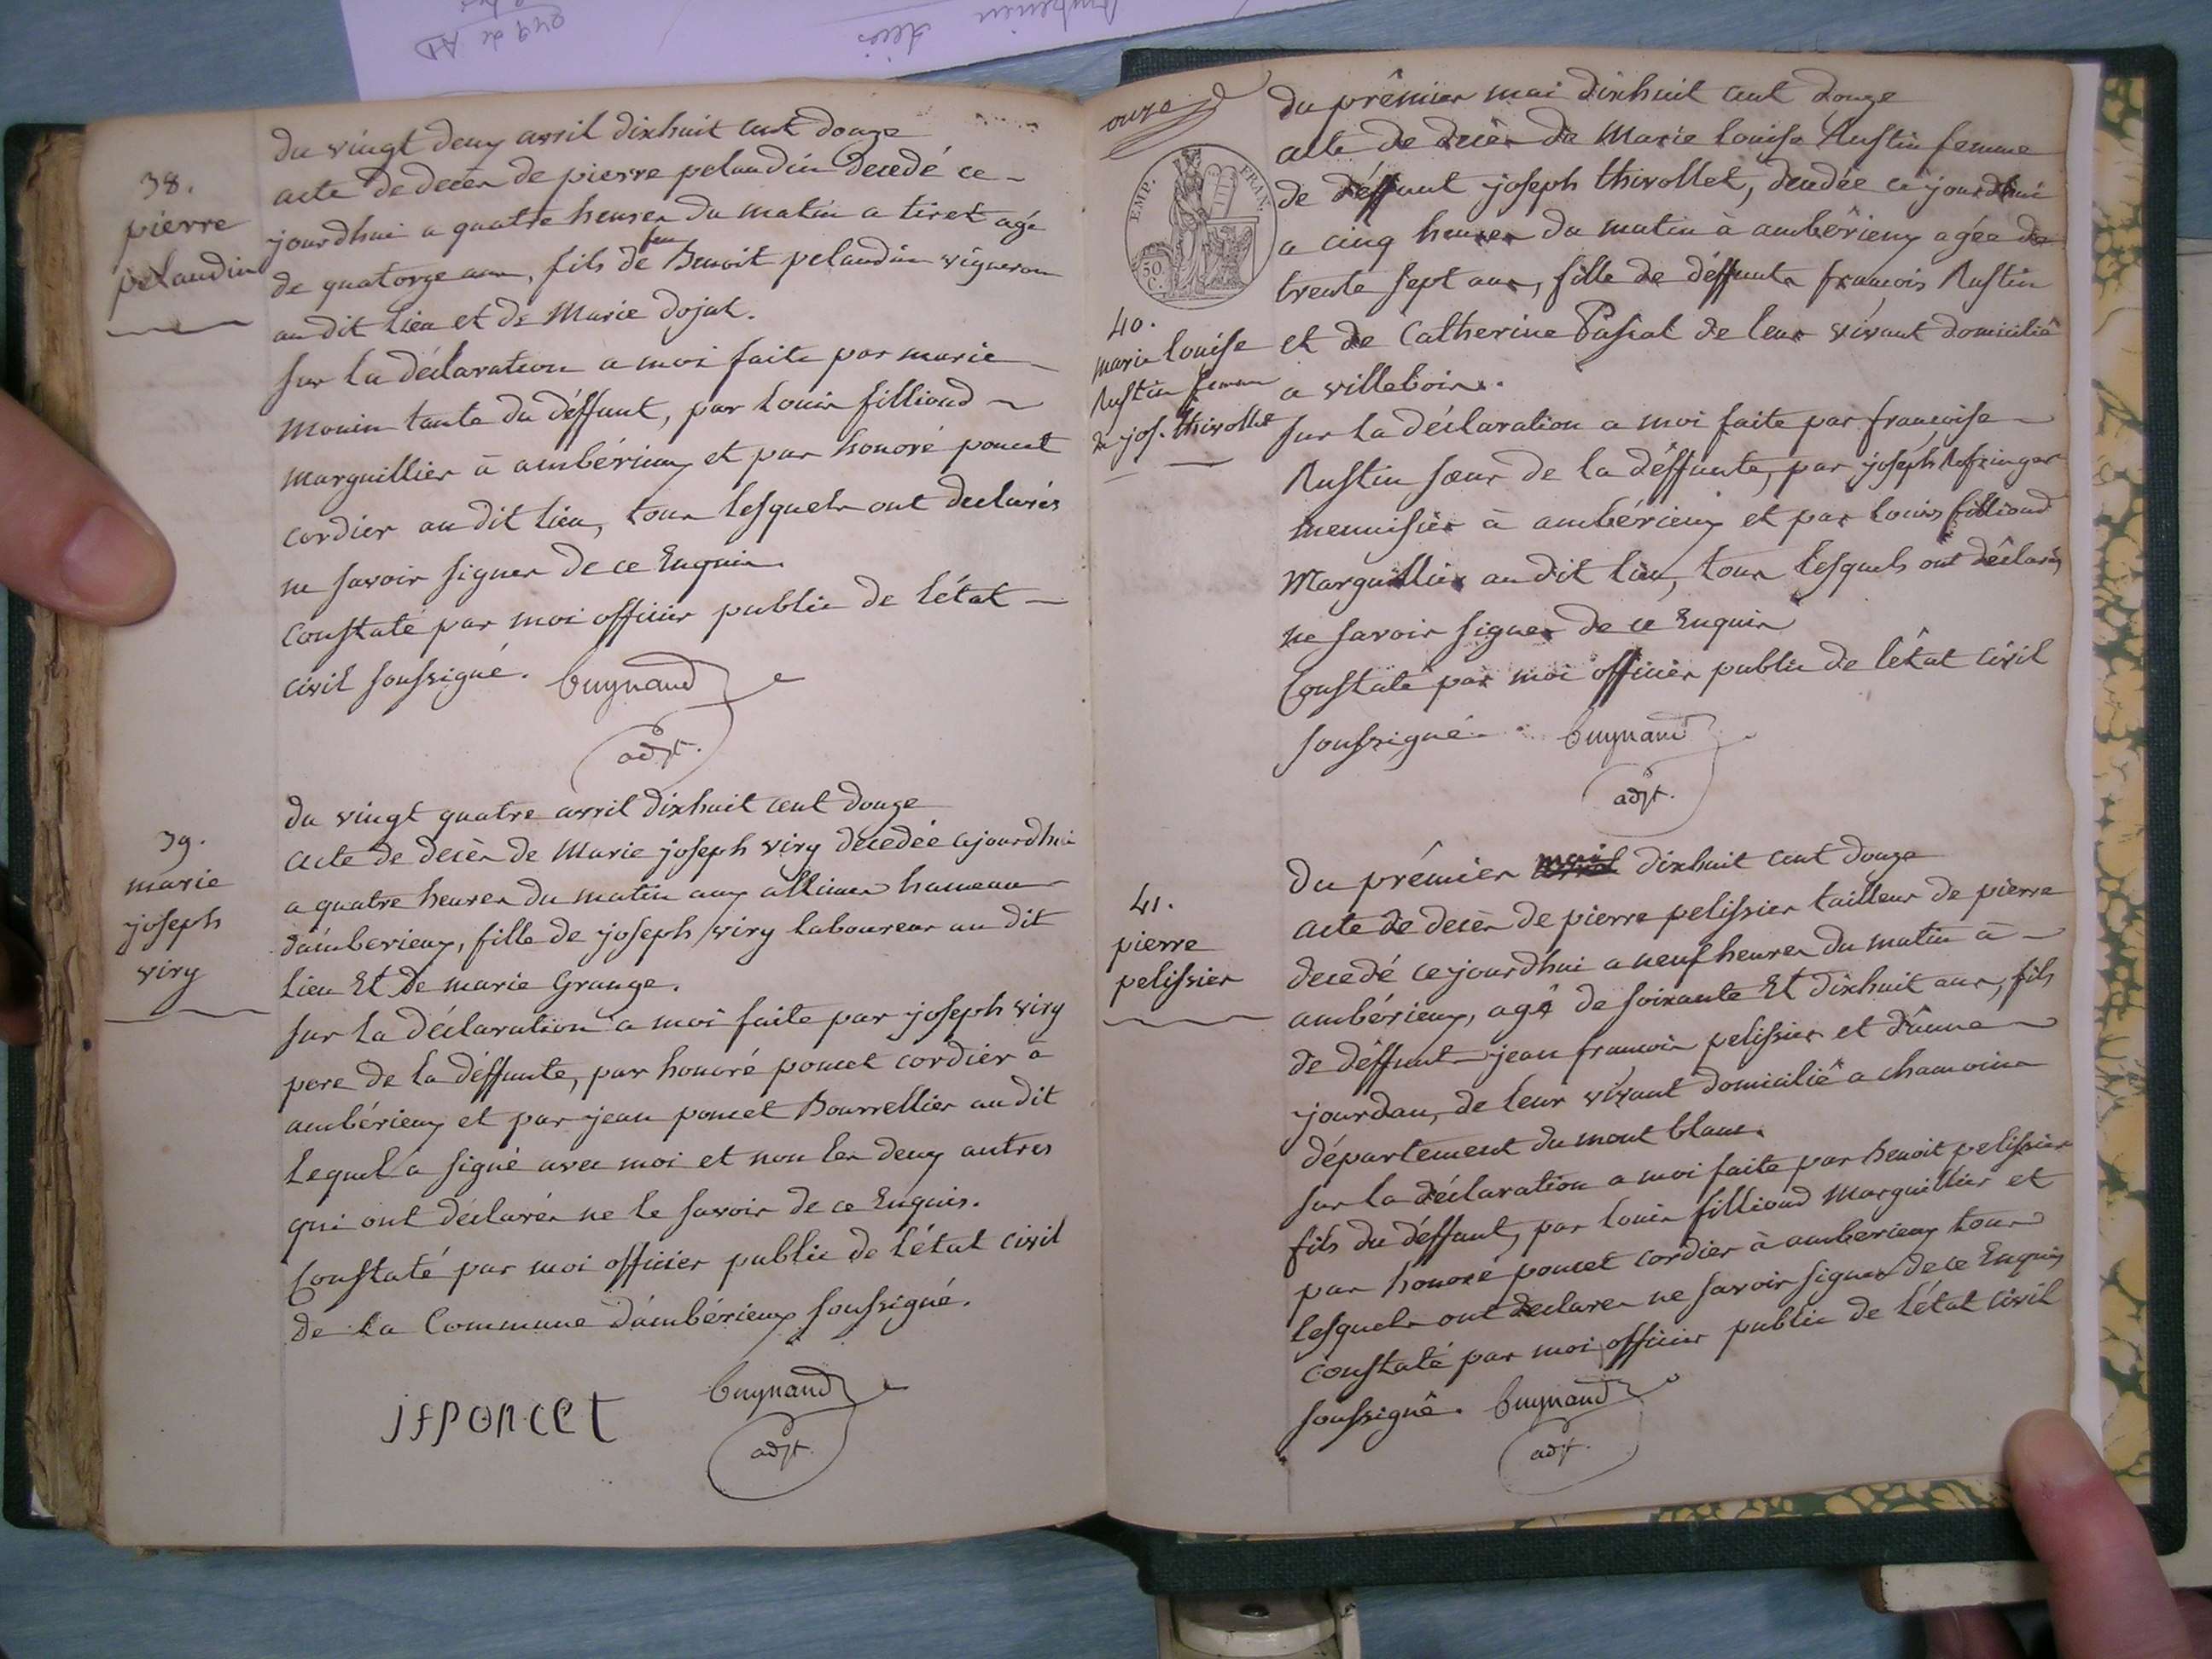 38.
pierre
pelaudin
du vingt deux avril dixhuit cent douze
acte de decès de pierre pelaudin decedé ce
jourdhui a quatre heures du matin a tiret agé
de quatorze ans, fils de feu Benoit pelaudin vigneron
au dit lieu et de Marie dojat.
sur la déclaration a moi faite par marie
Monin tante du déffunt, par Louis filliond
Marguillier à ambérieux et par honoré poncet
cordier au dit lieu, tous lesquels ont declarés
ne savoir signer de ce Enquis.
Constaté par moi officier public de l'état
civil soussigné. buynand
adjt.
39.
marie
joseph
viry
du vingt quatre avril dixhuit cent douze
acte de decès de Marie joseph viry decedée cejourdhui
a quatre heures du matin aux allimes hameau
d'amberieux, fille de joseph viry laboureur au dit
lieu Et de marie Grange.
sur la déclaration a moi faite par joseph viry
pere de la déffunte, par honoré poncet cordier à
ambérieux et par jean poncet Bourrellier au dit
Lequel a signé avec moi et non les deux autres
qui ont déclarés ne le savoir de ce Enquis.
Constaté par moi officier public de l'état civil
de La Commune d'ambérieux soussigné.
jfponcet buynand
adjt.
onze
EMP. FRAN.
50 C.
40.
marie louise
Rustin femme
de jos. thivollet
du prémier mai dixhuit cent douze
acte de decès de Marie louise Rustin femme
de déffunt joseph thivollet, decedée cejourdhui
a cinq heures du matin à ambérieux agée de
trente sept ans, fille de déffunts françois Rustin
et de Catherine Pascal de leur vivant domicilié
a villebois.
sur la déclaration a moi faite par françoise
Rustin sœur de la déffunte, par joseph
menuisier à ambérieux et par Louis filliond
Marguillier au dit lieu, tous lesquels ont déclarés
ne savoir signer de ce Enquis
Constaté par moi officier public de l'état civil
soussigné. buynand
adjt.
41.
pierre
pelissier
Du prémier mai dixhuit cent douze
acte de decès de pierre pelissier tailleur de pierre
decedé cejourdhui a neuf heures du matin à
ambérieux, agé de soixante Et dixhuit ans, fils
de déffunt jean francois pelissier et d'anne
jourdan, de leur vivant domicilié a chamoine
département du mont blanc.
sur la déclaration a moi faite par Benoit pelissier
fils du déffunt, par louis filliond Marguillier et
par honoré poncet cordier à amberieux tous
lesquels ont declarés ne savoir signer de ce Enquis
Constaté par moi officier public de L'état civil
soussigné. buynand
adjt.